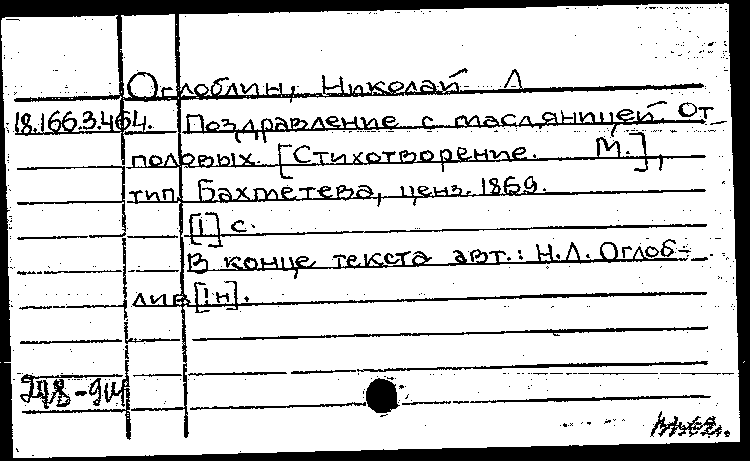 Оглоблин, Николай Л
18.166.3.464. Поздравление с масляницей. От
половых. [Стихотворение. М.],
тип. Бахметева, ценз. 1869.
[1] с.
В конце текста авт.: Н.Л. Оглоб-
лив [!н].